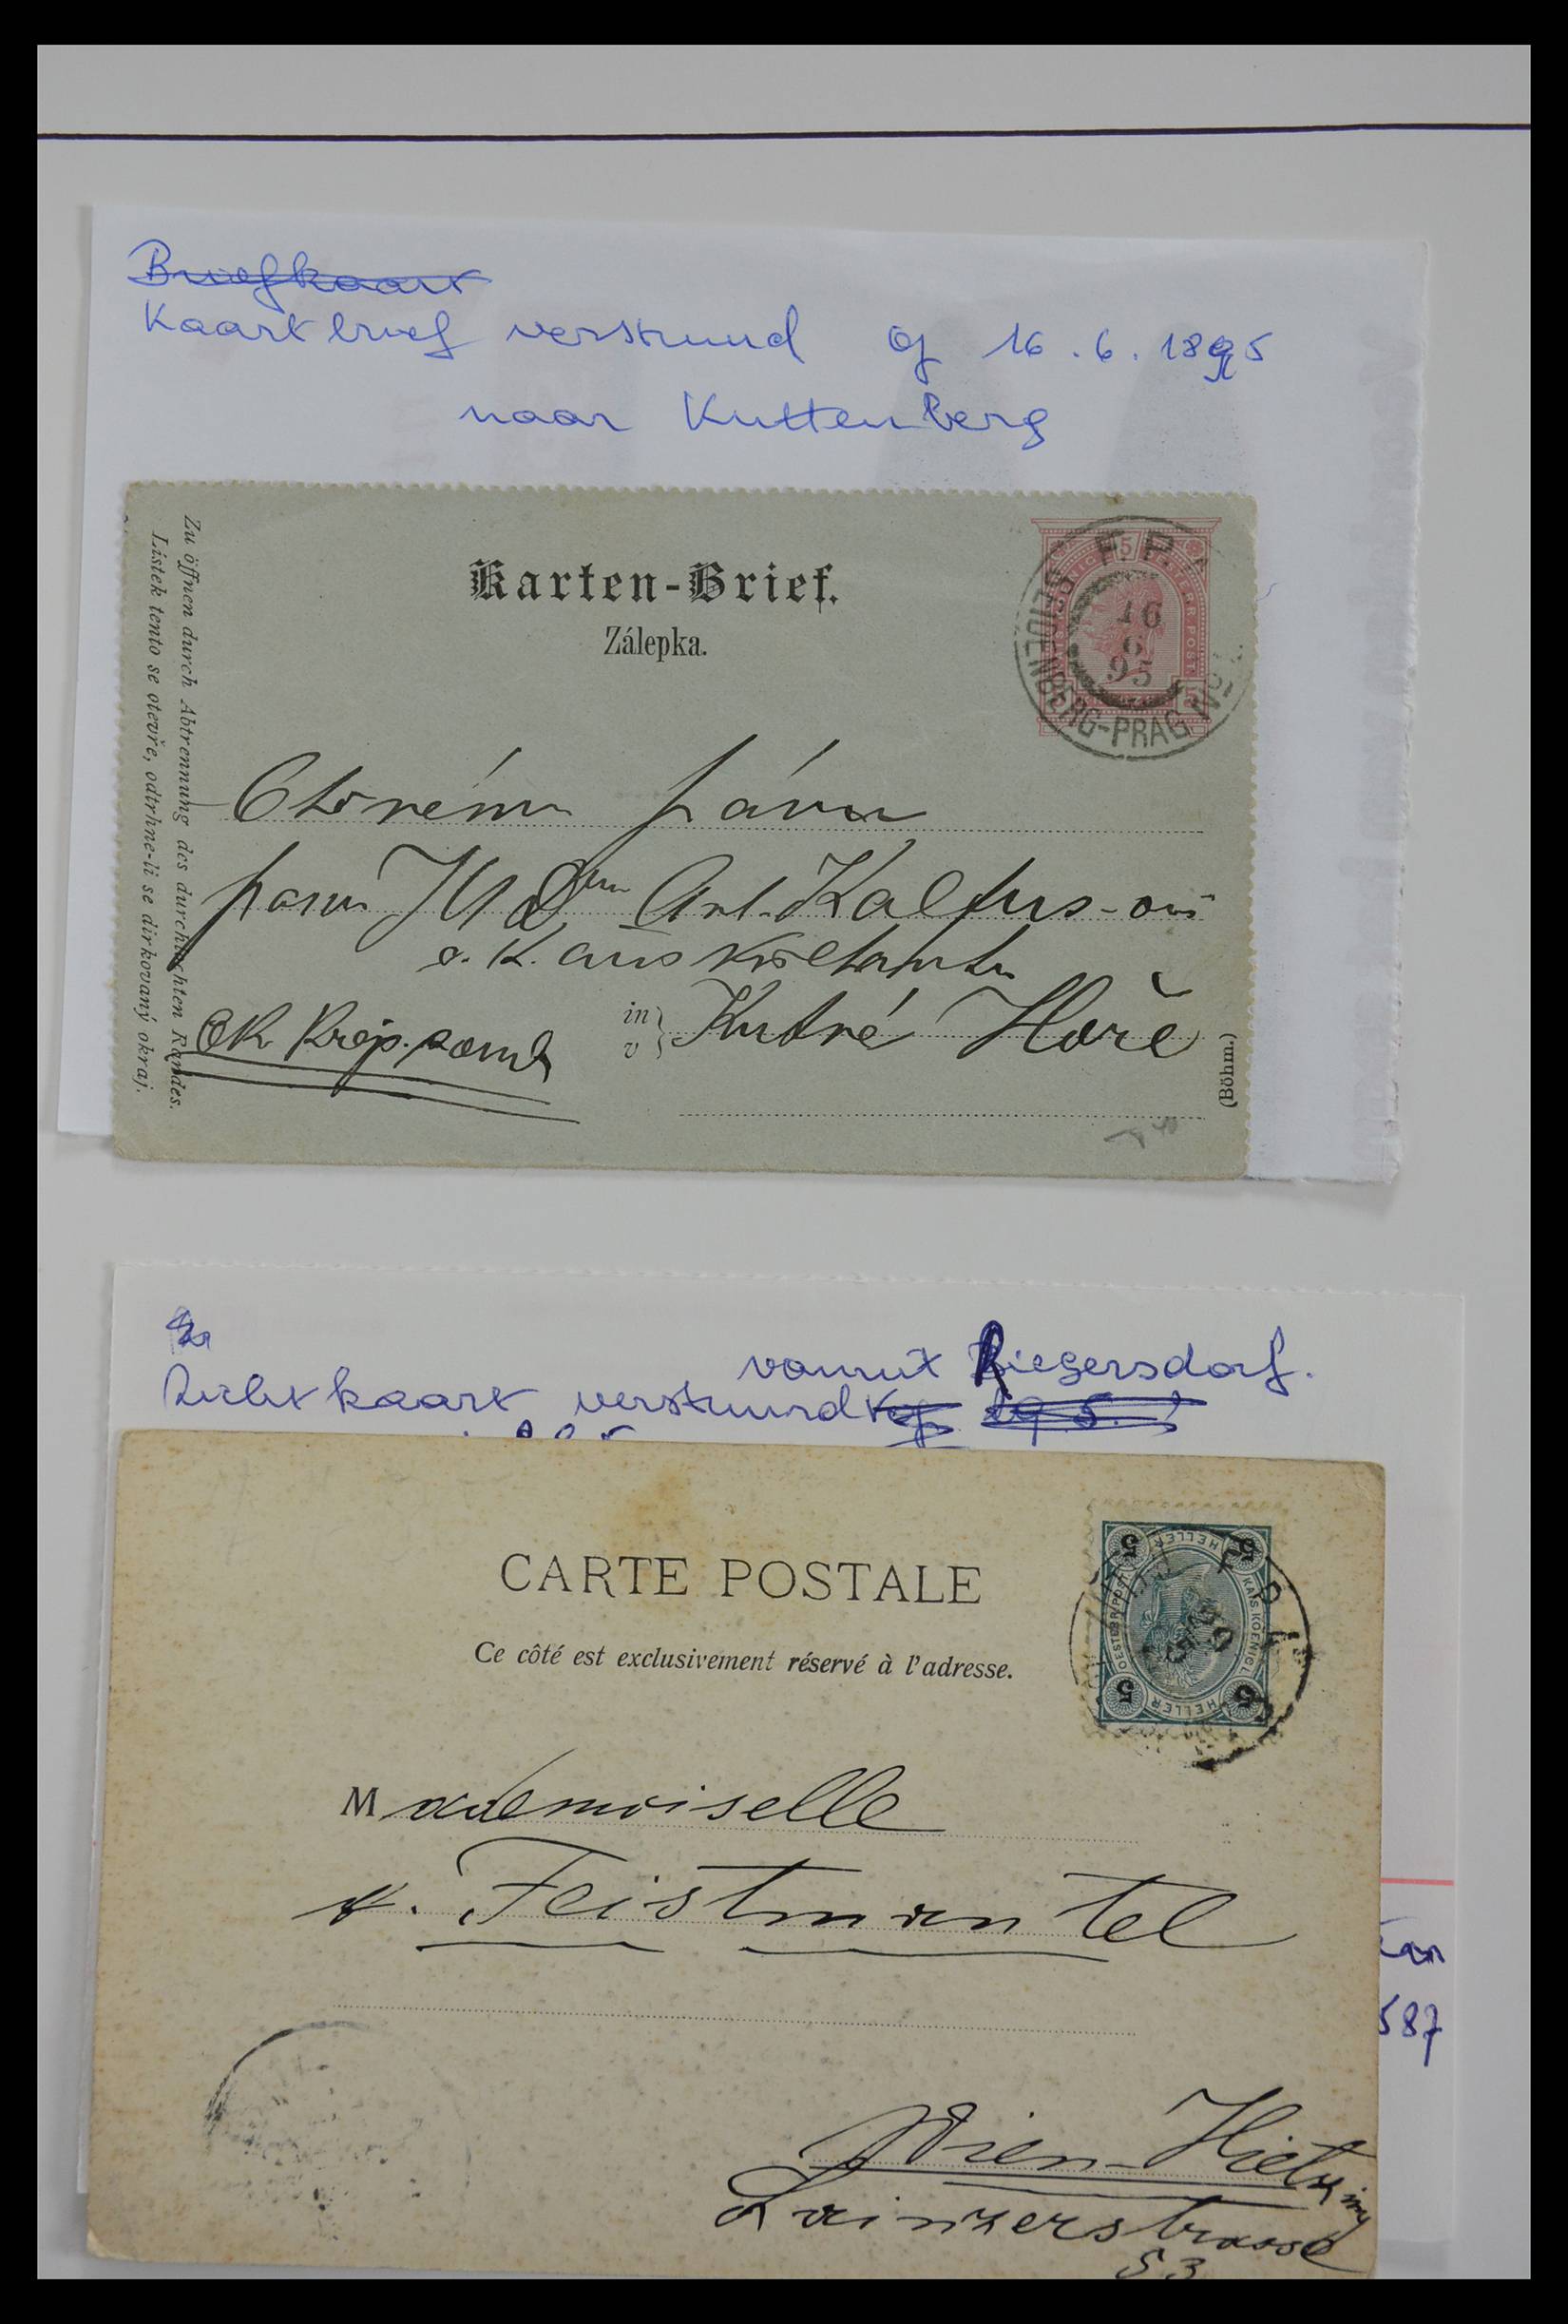 Briefkaart
Kaartbrief verstuurd op 16.6.1895
naar Kuttenberg
Karten-Brief.
Zálepka.
Zu öffnen durch Abtrennung des durchlochten Randes.
Lístek tento se otevře, odtrhne-li se dírkovaný okraj.
5
F.P.
16
6
95
SEIDENBERG-PRAG No
Ctěnému pánu
panu JUDru Ant. Kalfus-ovi
c. k. auskultantu
in
v
Kutné Hoře
(Böhm.)
vanuit Riegersdorf.
Zichtkaart verstuurd op 19.5.
CARTE POSTALE
Ce côté est exclusivement réservé à l'adresse.
5 HELLER 5
KAIS.KOENIGL.
5 HELLER 5
Mademoiselle
v. Feistmantel
587
Wien-Hietzing
Lainzerstrasse
53